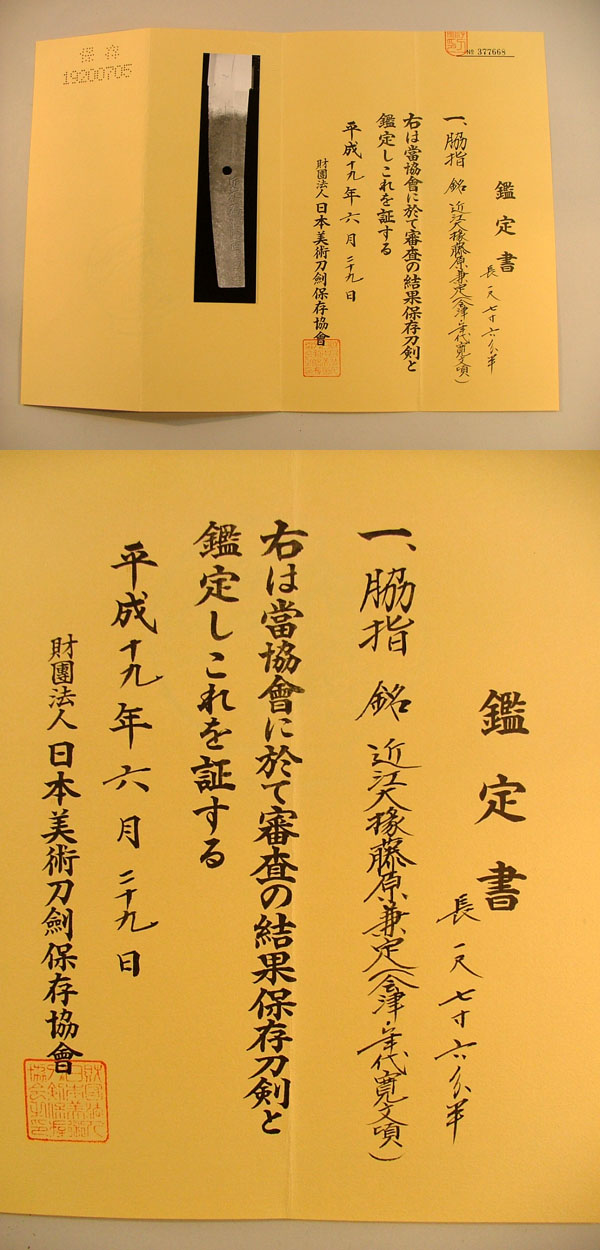 保存
19200705
№ 377668
鑑定書
長 一尺 七寸 六分半
一、脇指 銘 近江大掾藤原兼定(会津・年代寛文頃)
右は當協會に於て審査の結果保存刀剣と
鑑定しこれを証する
平成十九年六月二十九日
財團法人日本美術刀劍保存協會
鑑定書
長 一尺 七寸 六分半
一、脇指 銘 近江大掾藤原兼定(会津・年代寛文頃)
右は當協會に於て審査の結果保存刀剣と
鑑定しこれを証する
平成十九年六月二十九日
財團法人日本美術刀劍保存協會